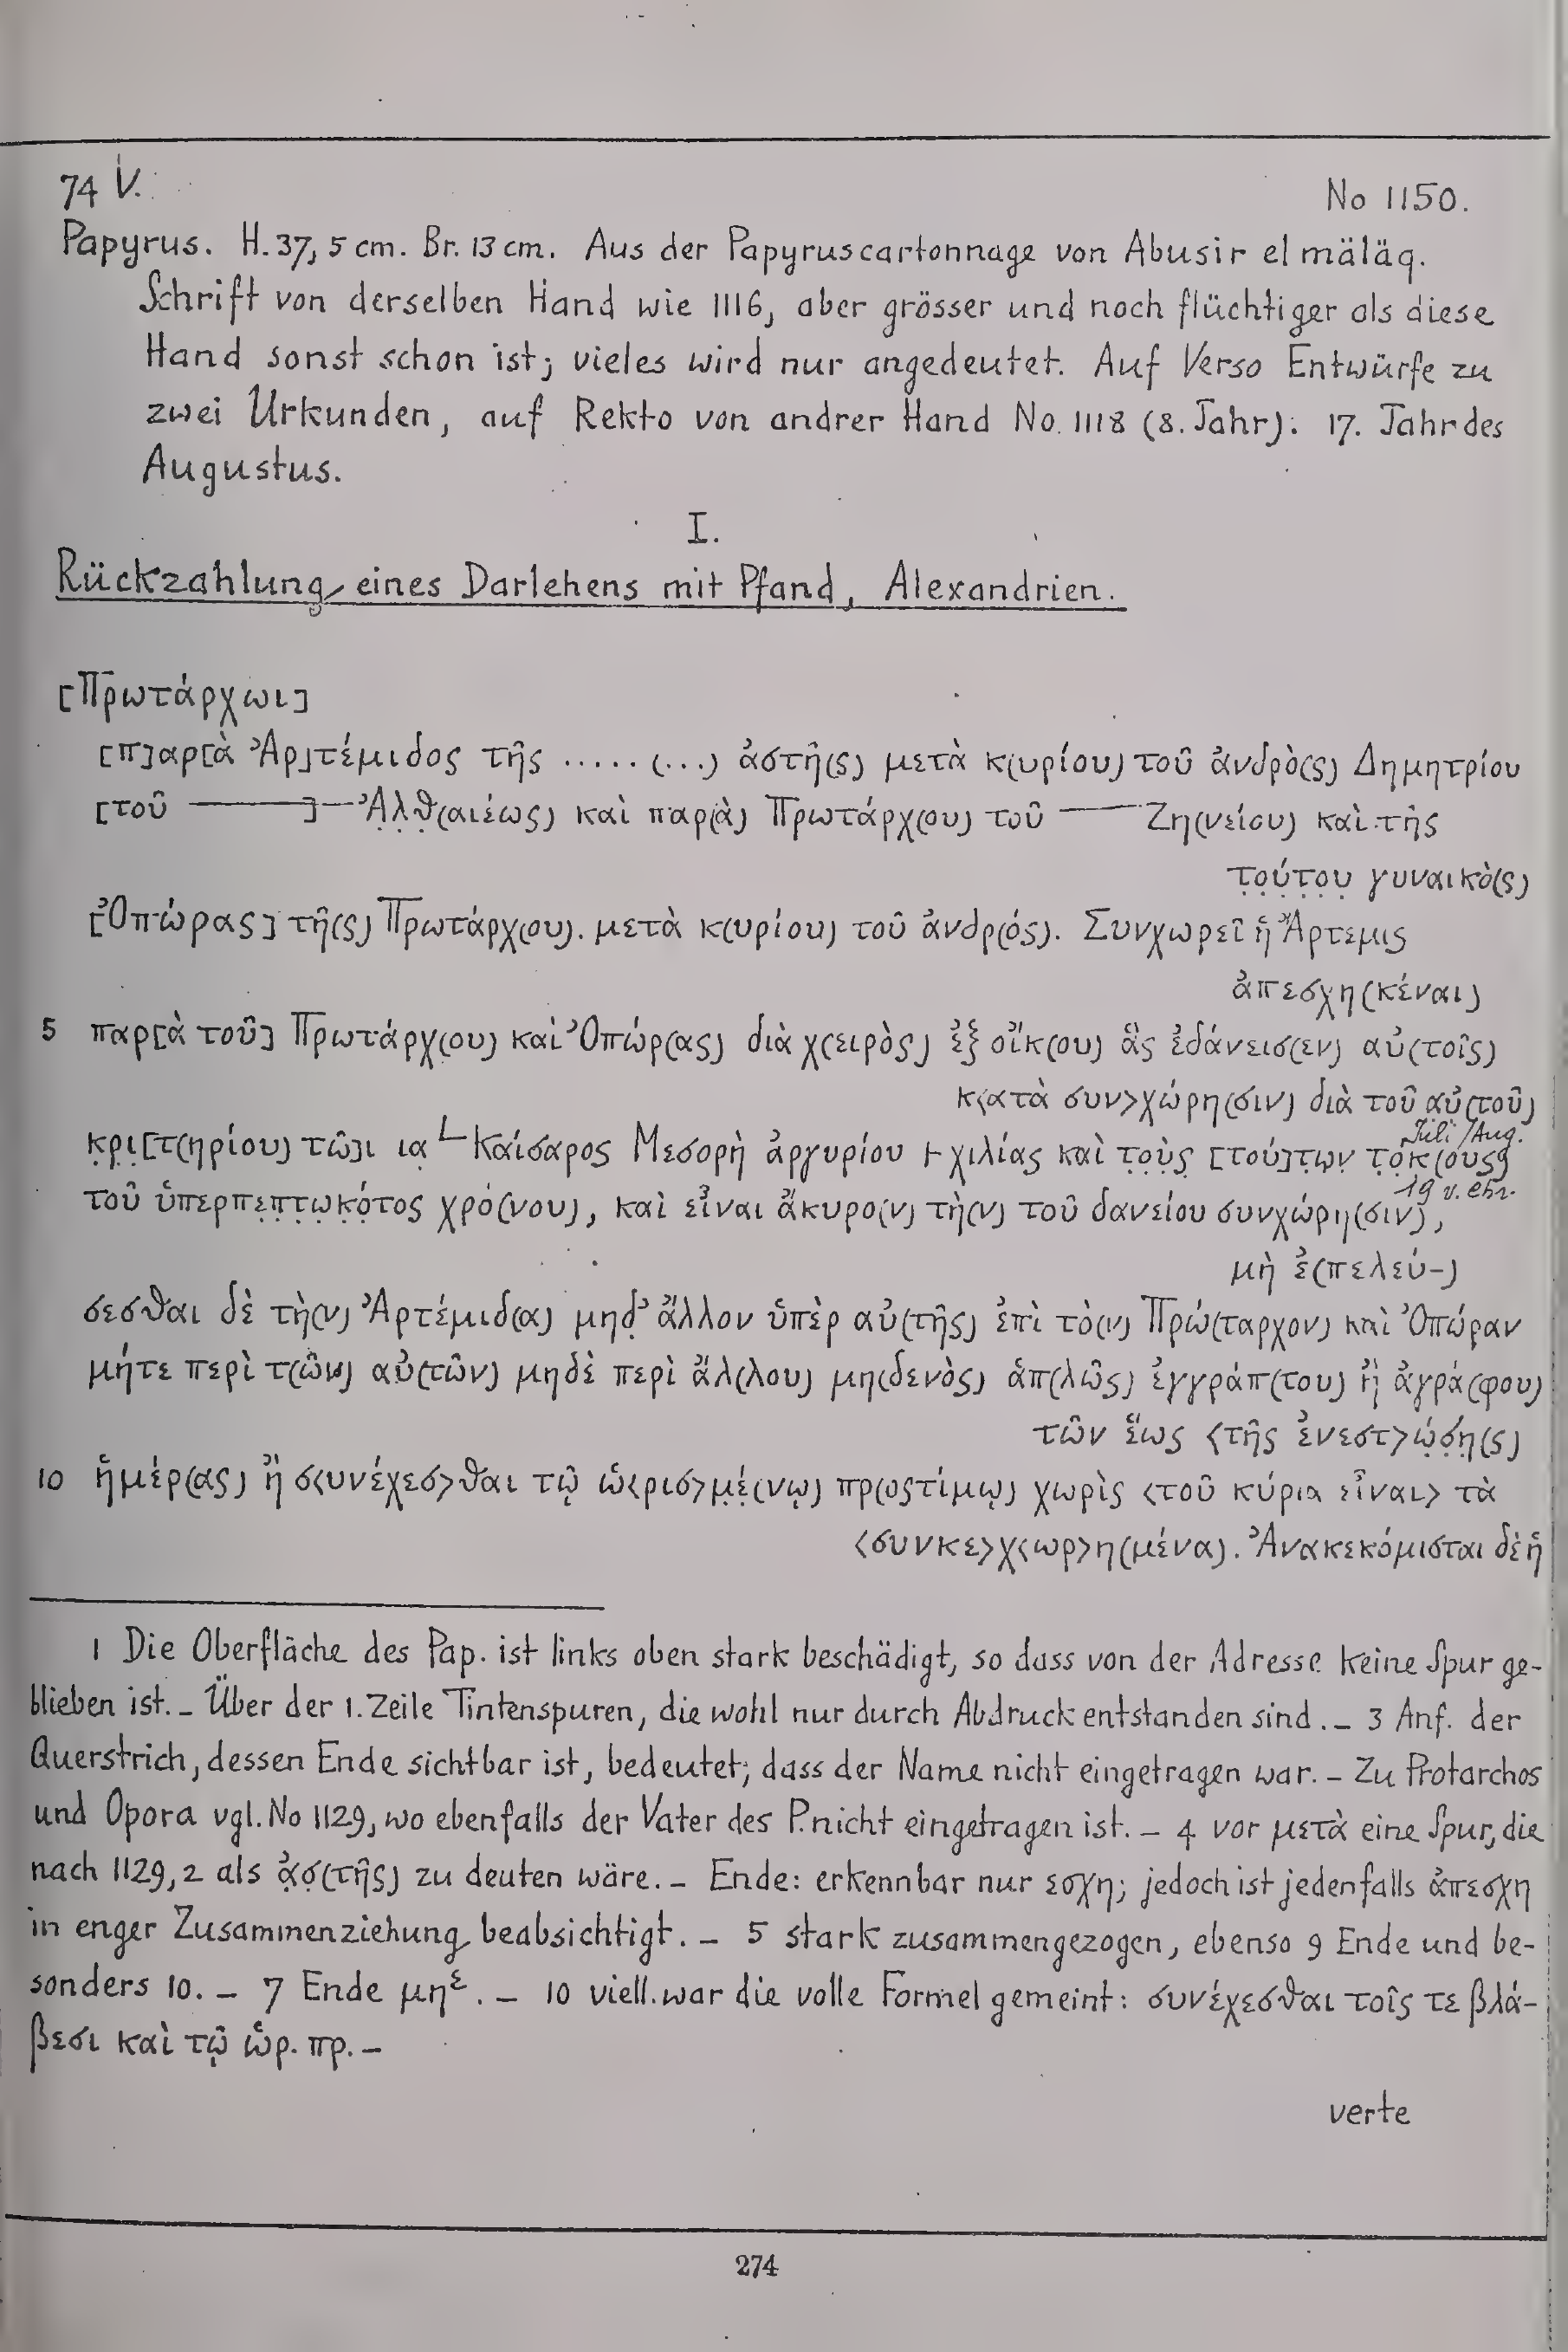 74 V.
No 1150.
Papyrus. H. 37,5 cm. Br. 13 cm. Aus der Papyruscartonnage von Abusir el mäläq.
Schrift von derselben Hand wie 1116, aber grösser und noch flüchtiger als diese
Hand sonst schon ist; vieles wird nur angedeutet. Auf Verso Entwürfe zu
zwei Urkunden, auf Rekto von andrer Hand No. 1118 (8. Jahr). 17. Jahr des
Augustus.
I.
Rückzahlung eines Darlehens mit Pfand, Alexandrien.
[Πρωτάρχωι]
[π]αρ[ὰ Ἀρ]τέμιδος τῆς ..... (...) ἀστῆ(ς) μετὰ κ(υρίου) τοῦ ἀνδρὸ(ς) Δημητρίου
[τοῦ ———]— Ἀ̣λ̣θ̣(αιέως) καὶ παρ(ὰ) Πρωτάρχ(ου) τοῦ —— Ζη(νείου) καὶ τῆς
τ̣ο̣ύ̣τ̣ο̣υ̣ γυναικὸ(ς)
[Ὀπώρας] τῆ(ς) Πρωτάρχ(ου). μετὰ κ(υρίου) τοῦ ἀνδρ(ός). Συνχωρεῖ ἡ Ἄρτεμις
ἀπεσχη(κέναι)
5 παρ[ὰ τοῦ] Πρωτάρχ(ου) καὶ Ὀπώρ(ας) διὰ χ(ειρὸς) ἐξ οἴκ(ου) ἃς ἐδάνεισ(εν) αὐ(τοῖς)
κ〈ατὰ συν〉χώρη(σιν) διὰ τοῦ αὐ(τοῦ)
κ̣ρ̣ι̣[τ(ηρίου) τῶ]ι ια̣ L Καίσαρος Μεσορὴ ἀ̣ργυρίου 𐅂 χιλίας καὶ τ̣ο̣ὺ̣ς̣ [τού]τ̣ω̣ν̣ τ̣ό̣κ̣(ους)
Juli/Aug.
19 v. Chr.
τοῦ ὑπερπ̣ε̣π̣τ̣ω̣κ̣ό̣τος χρό(νου), καὶ εἶναι ἄ̣κυρο(ν) τὴ(ν) τοῦ δανείου συνχώρη(σιν),
μὴ ἐ(πελεύ-)
σεσθαι δὲ τὴ(ν) Ἀρτέμιδ(α) μηδ̣’ ἄλλον ὑπὲρ αὐ(τῆς) ἐπὶ τὸ(ν) Πρώ(ταρχον) καὶ Ὀπώρ̣αν
μήτε περὶ τ(ῶν) αὐ̣(τῶν) μηδὲ περὶ ἄλ(λου) μη(δενὸς) ἁπ(λῶς) ἐγγράπ(του) ἢ ἀγρά(φου)
τῶν ἕως 〈τῆς ἐνεστ〉ώ̣σ̣η̣(ς)
10 ἡμέρ(ας) ἢ σ〈υνέχεσ〉θαι τῷ ὡ〈ρισ〉μ̣έ̣(νῳ) πρ(οστίμῳ) χωρὶς 〈τοῦ κύρια εἶναι〉 τὰ
〈συνκε〉χ〈ωρ〉η(μένα). Ἀνακεκόμισται δὲ ἡ
1 Die Oberfläche des Pap. ist links oben stark beschädigt, so dass von der Adresse keine Spur ge-
blieben ist. – Über der 1. Zeile Tintenspuren, die wohl nur durch Abdruck entstanden sind. – 3 Anf. der
Querstrich, dessen Ende sichtbar ist, bedeutet, dass der Name nicht eingetragen war. – Zu Protarchos
und Opora vgl. No 1129, wo ebenfalls der Vater des P. nicht eingetragen ist. – 4 vor μετὰ eine Spur, die
nach 1129,2 als ἀ̣σ̣(τῆς) zu deuten wäre. – Ende: erkennbar nur εσχη; jedoch ist jedenfalls ἀπεσχη
in enger Zusammenziehung beabsichtigt. – 5 stark zusammengezogen, ebenso 9 Ende und be-
sonders 10. – 7 Ende μη^ε. – 10 viell. war die volle Formel gemeint: συνέχεσθαι τοῖς τε βλά-
βεσι καὶ τῷ ὡρ. πρ. –
verte
274